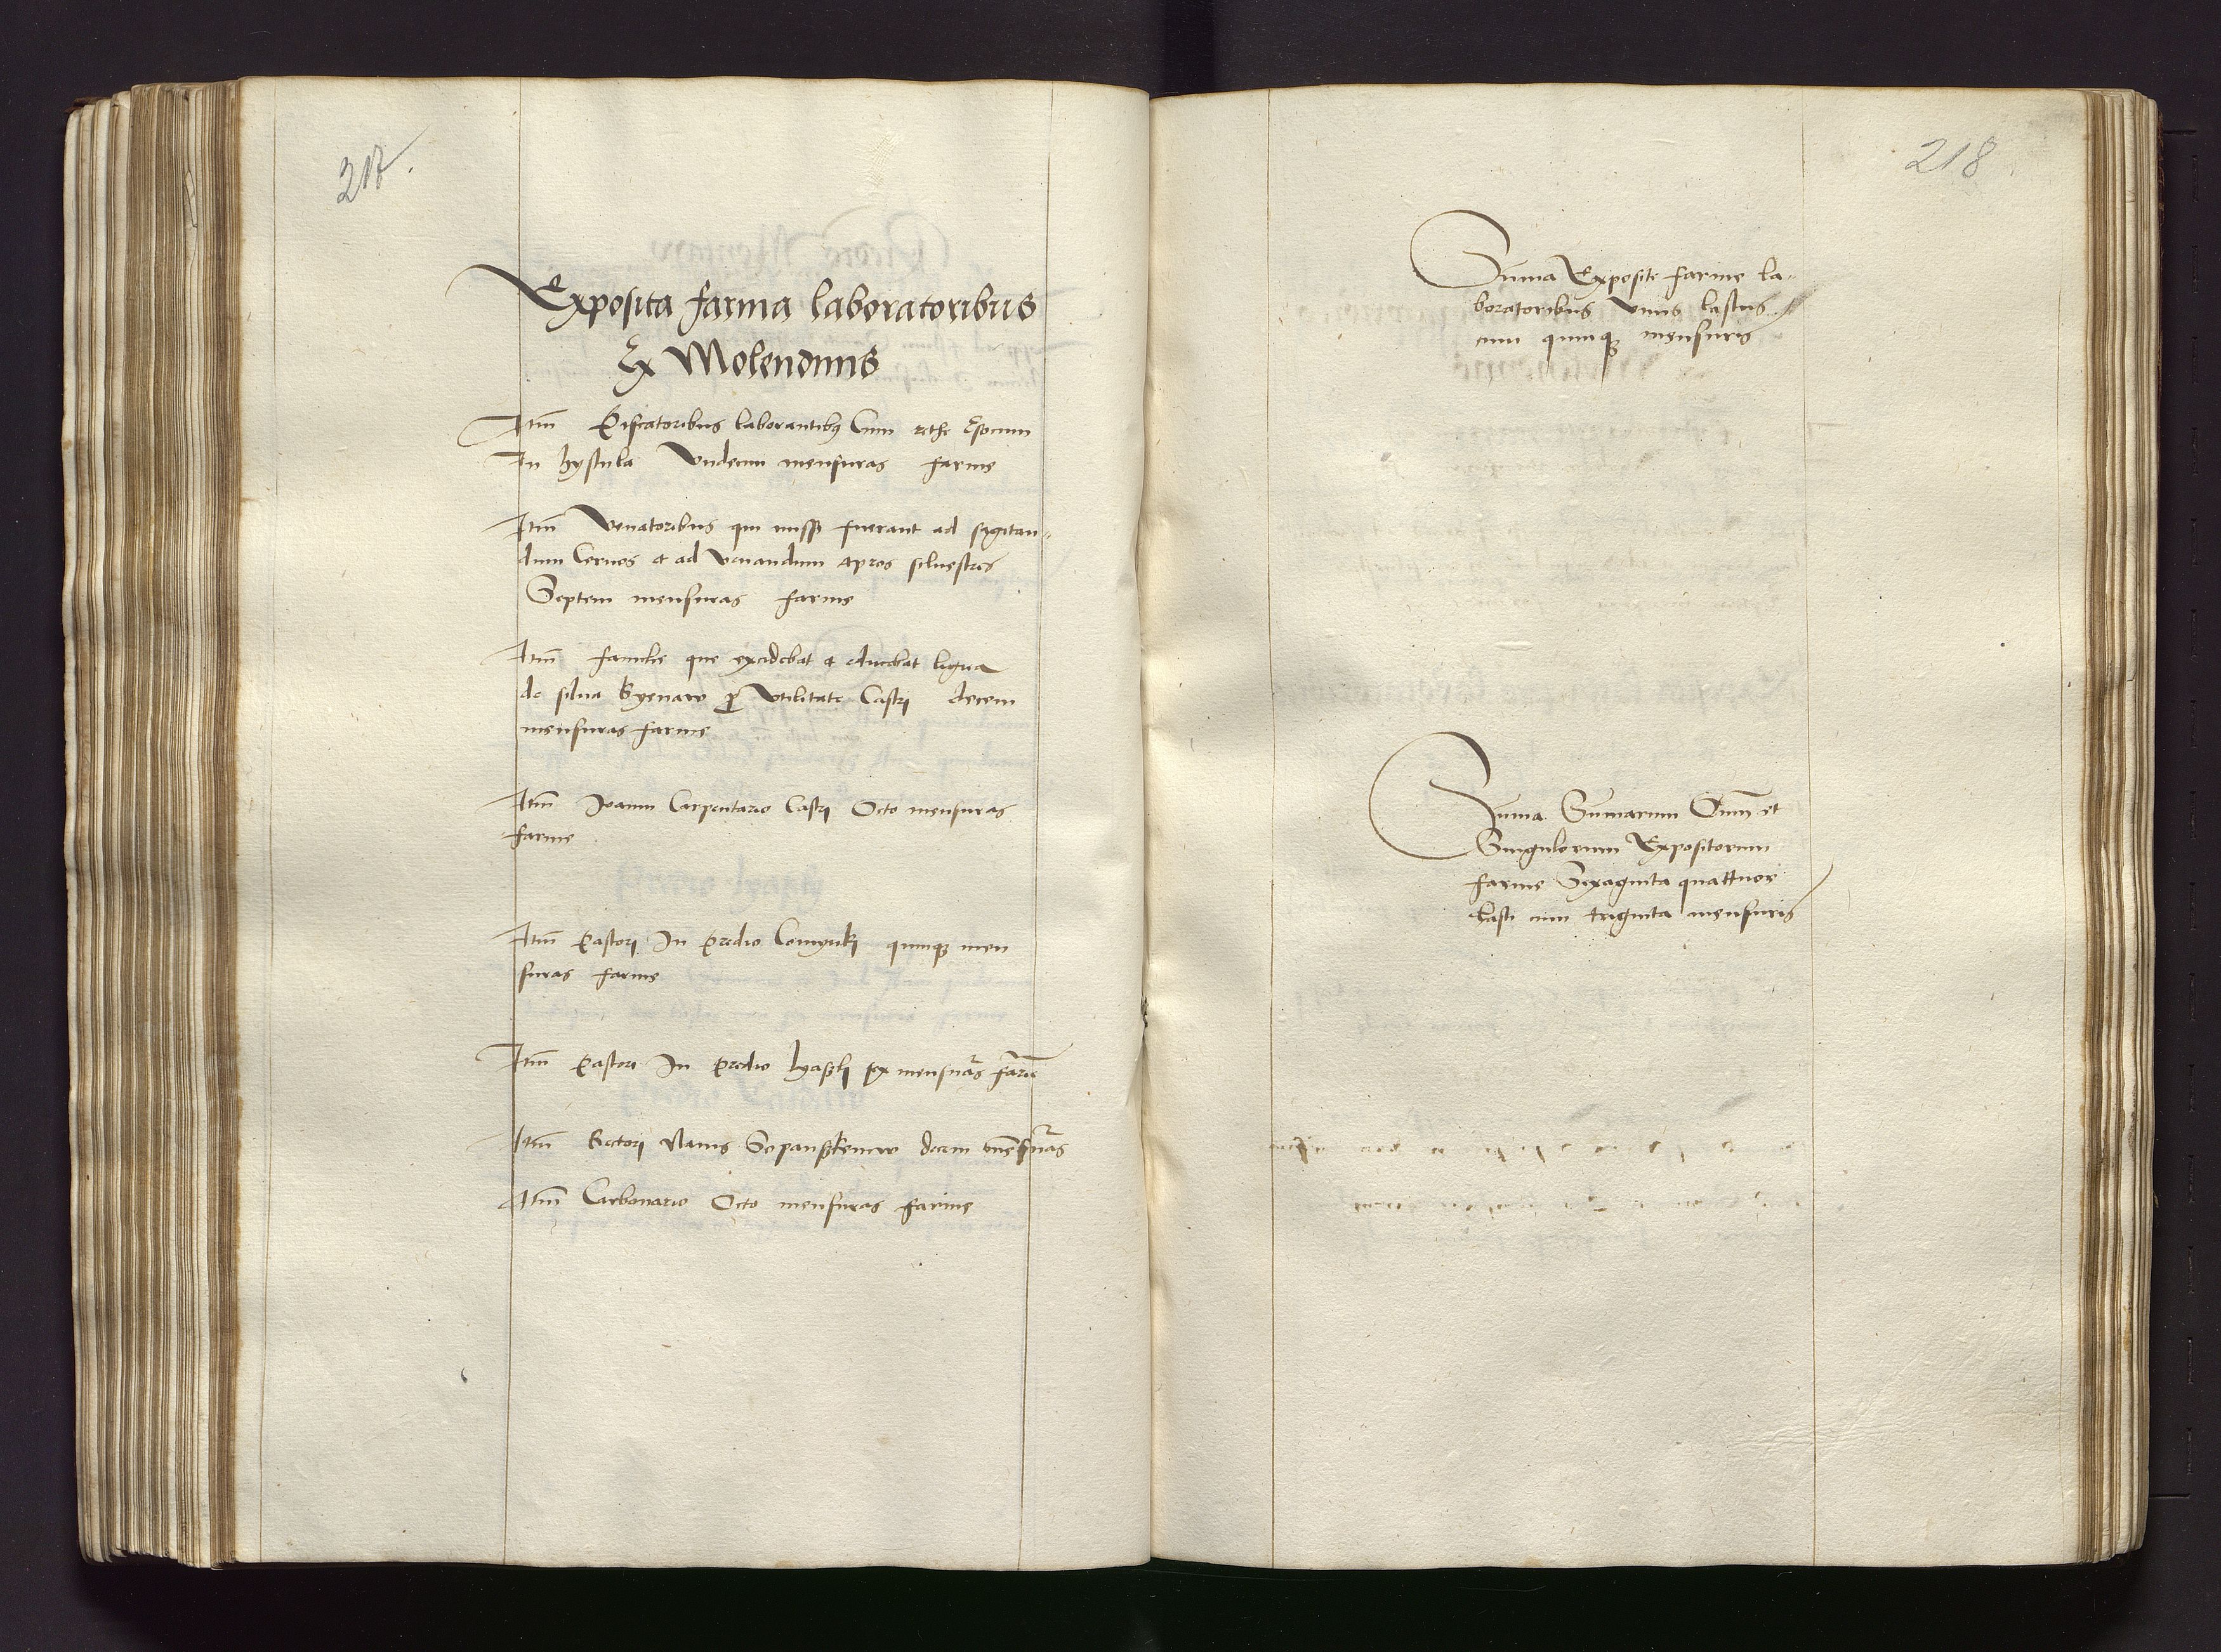 217.
Exposita farina laboratoribus
Ex Molendinis
Itm̄ Piscatoribus laborantibꝫ Cum rethe Esocum
In hystula Vndecim mensuras farine
Itm̄ Venatoribus qui missi fuerant ad sagitan-
dum Ceruos et ad Venandum apros siluestres
Septem mensuras farine
Itm̄ familie que excidebat et educebat ligna
de silua Gyenaw ꝓ Vtilitate Castri decem
mensuras farine
Itm̄ Joanni Carpentario Castri Octo mensuras
farine
Itm̄ Pastori In predio quinqꝫ men
suras farine
Itm̄ Pastori In predio sex mensuras farine
Itm̄ Rectori Nauis decem mensuras
Itm̄ Carbonario Octo mensuras farine
218
Suma Exposite farine la-
boratoribus Vnus lastus
cum quinqꝫ mensuris
Suma Sumarum Omm̄ et
Singulorum Expositorum
farine Sexaginta quattuor
lasti cum triginta mensuris